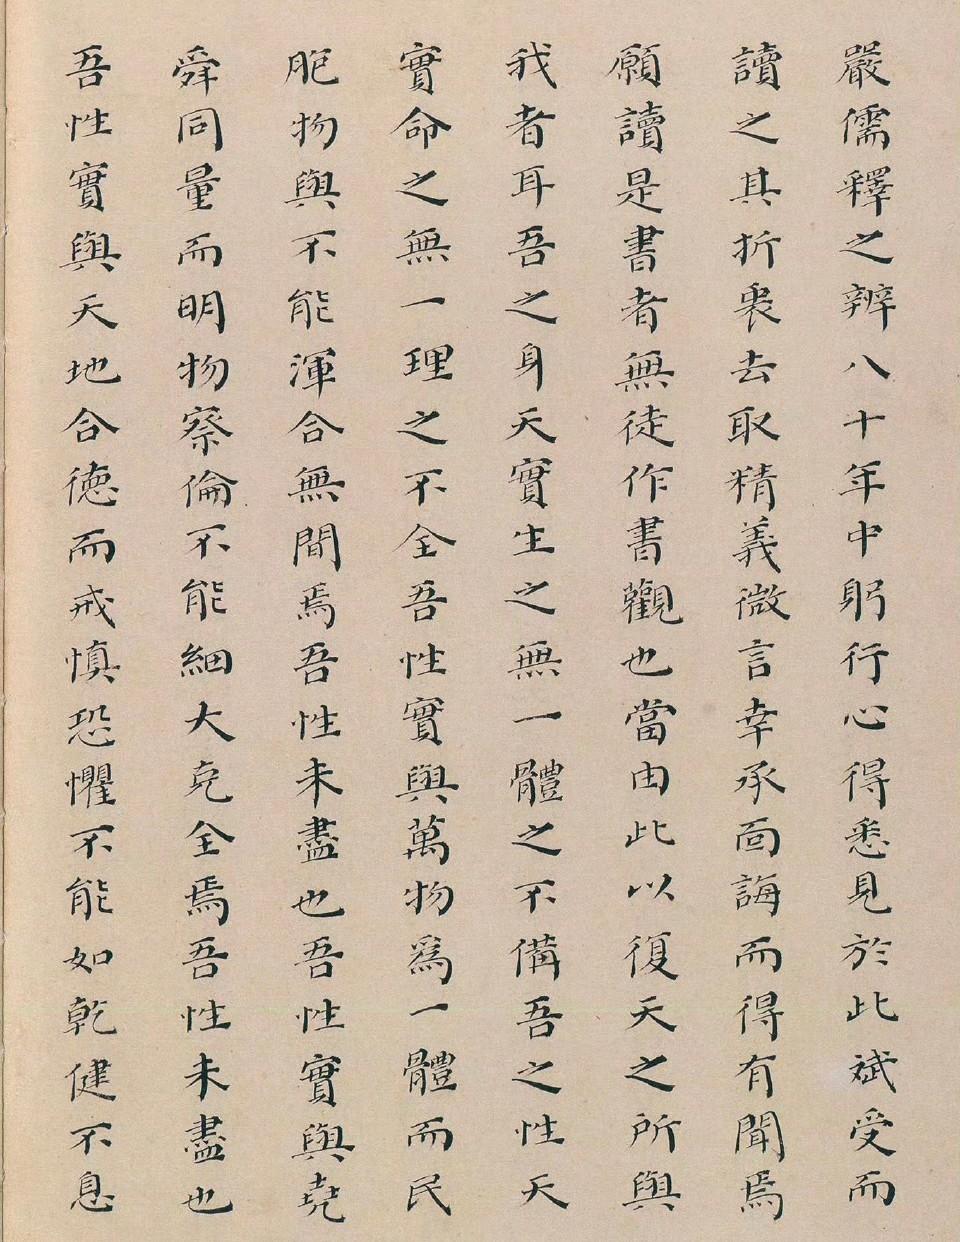 嚴儒釋之辨八十年中躬行心得悉見於此斌受而
讀之其折衷去取精義微言幸承面誨而得有聞焉
願讀是書者無徒作書觀也當由此以復天之所與
我者耳吾之身天實生之無一體之不備吾之性天
實命之無一理之不全吾性實與萬物爲一體而民
胞物與不能渾合無間焉吾性未盡也吾性實與堯
舜同量而明物察倫不能細大克全焉吾性未盡也
吾性實與天地合德而戒慎恐懼不能如乾健不息